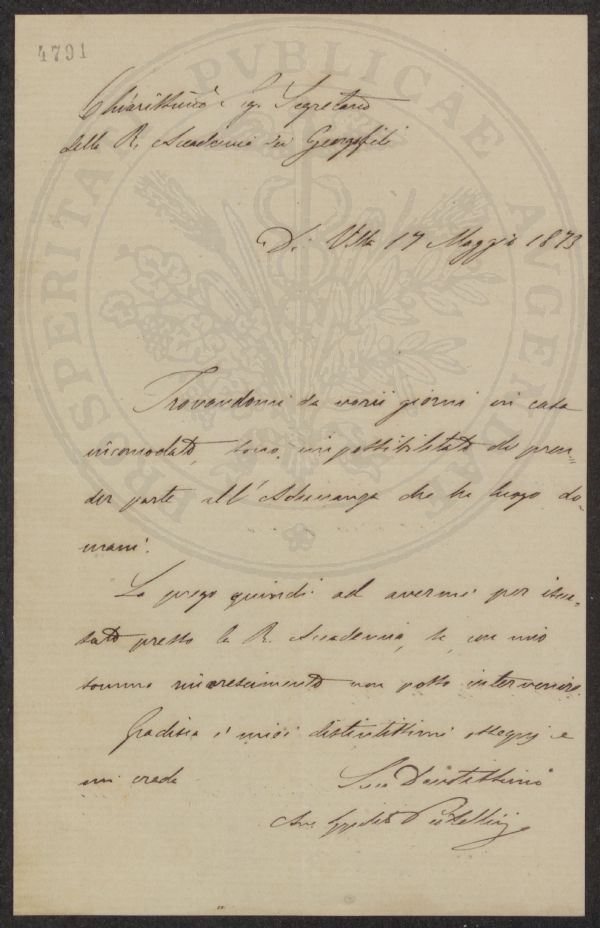 4791
PROSPERITATI PVBLICAE AVGENDAE
Chiarissimo Sig. Segretario
della R. Accademia dei Georgofili
Di Villa 17 Maggio 1873
Trovandomi da varii giorni in casa
incomodato, sono impossibilitato di pren=
der parte all'Adunanza che ha luogo do-
mani.
La prego quindi ad avermi per iscu-
sato presso la R. Accademia, se con mio
sommo rincrescimento non posso intervenire.
Gradisca i miei distintissimi ossequj e
mi creda
Suo Devotissimo